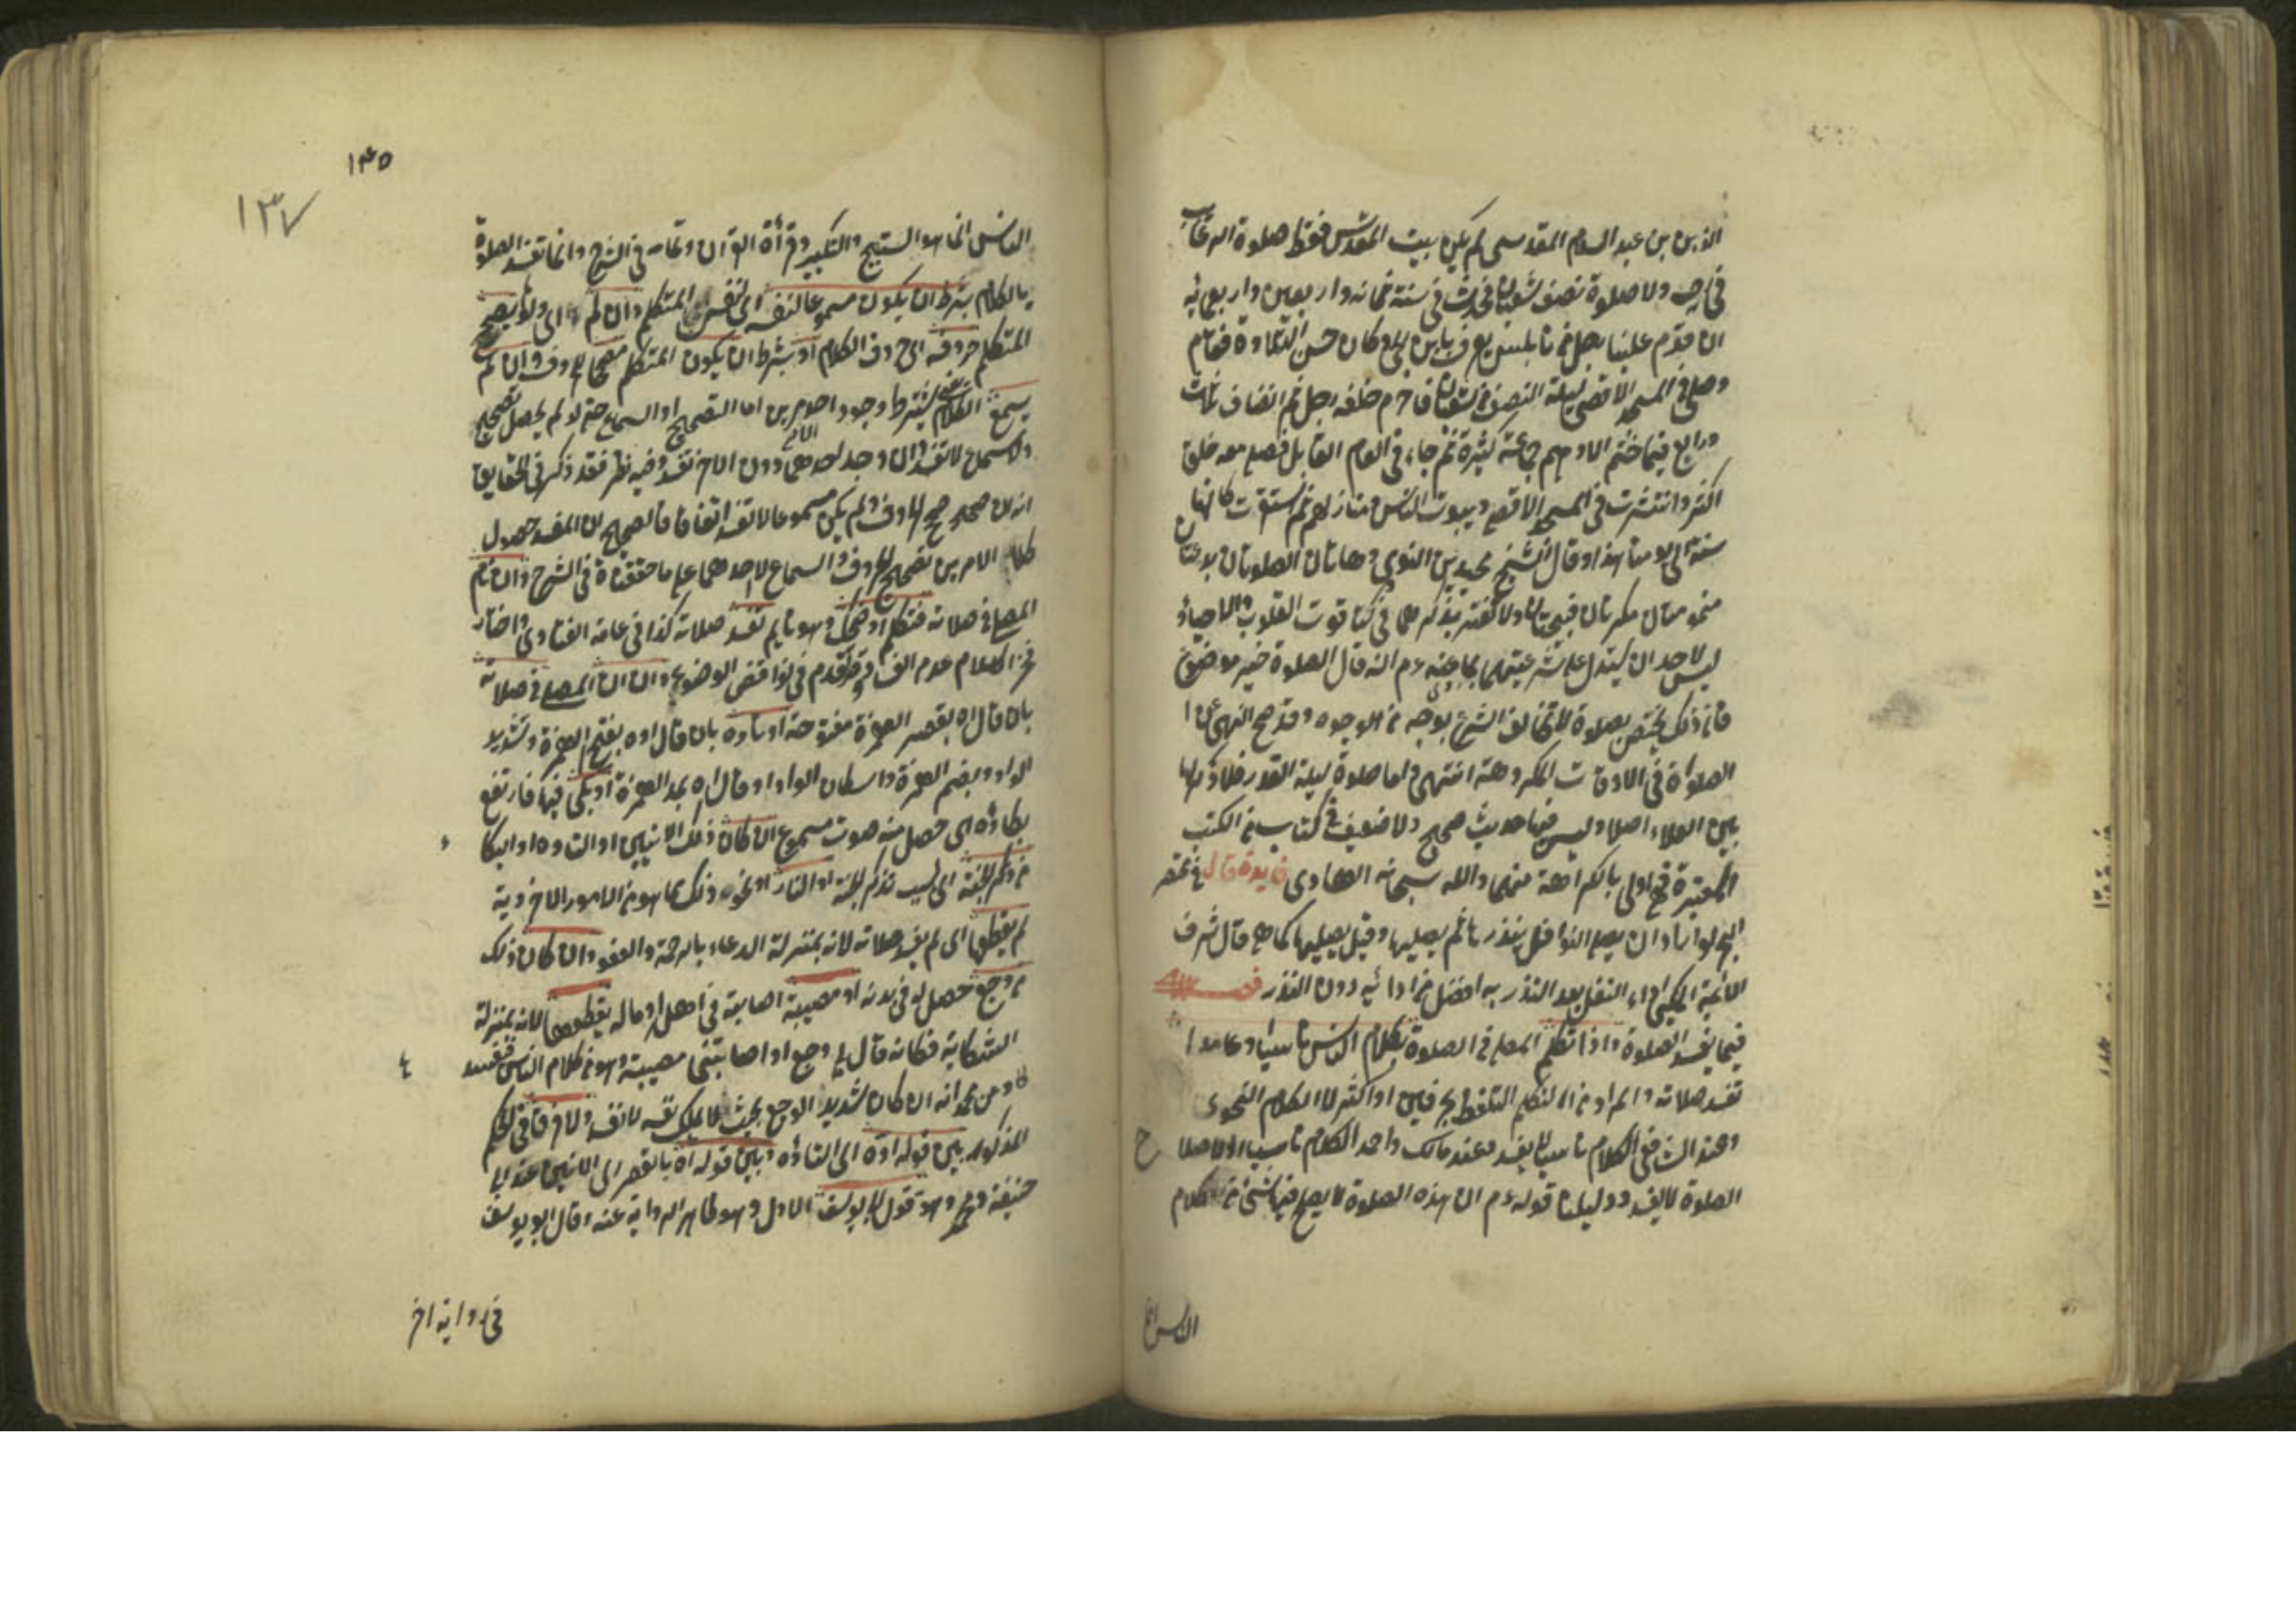 الدين بن عبد السلام المقدسي لم يكن ببيت المقدس قط صلوة الرغائب
في رجب ولا صلوة نصف شعبان فحدث في سنة ثمانية واربعين واربعمائة
ان قدم علينا رجل من نابلس يعرف بابن الحي وكان حسن التلاوة فقام
وصلى في المسجد الاقصى ليلة النصف من شعبان فاحرم خلفه رجل ثم انضاف ثالث
ورابع فما ختم الا وهم جماعة كثيرة ثم جاء في العام القابل فصلى معه خلق
اكثر وانتشرت في المسجد الاقصى وبيوت الناس ومنازلهم ثم استقرت كانها
سنة الى يومنا هذا وقال الشيخ محيي الدين النووي وهاتان الصلوتان بدعتان
مذمومتان منكرتان قبيحتان ولا تغتر بذكرهما في كتاب قوت القلوب والاحياء
ليس لاحد ان يستدل على شرعيتهما بما عنه عم انه قال الصلوة خير موضوع
فان ذلك يختص بصلوة لا تخالف الشرع بوجه من الوجوه وقد صح النهي عن
الصلوة في الاوقات المكروهة انتهى واما صلوة ليلة القدر فلا ذكر لها
بين العلماء اصلا وليس فيها حديث صحيح ولا ضعيف في كتاب من الكتب
المعتبرة فهي اولى بالكراهة منهما والله سبحانه الهادي فايدة قال في مختصر
البحر لو اراد ان يصلي النوافل ينذرها ثم يصليها وقيل يصليها كما هي قال شرف
الائمة المكي اداء النفل بعد النذر به افضل من ادائه دون النذر فصل
فيما يفسد الصلوة واذا تكلم المصلي في الصلوة بكلام الناس ناسيا وعامدا
تفسد صلاته والمراد من التكلم التلفظ بحرفين او اكثر لا الكلام النحوي
وعند الشافعي الكلام ناسيا لا يفسد وعند مالك واحمد الكلام ناسيا ولاصلاح
الصلوة لا يفسد ودليلنا قوله عم ان هذه الصلوة لا يصلح فيها شيء من كلام
الناس انما
١٣٥
١٣٧
الناس انما هو التسبيح والتكبير وقرأة القرآن وتمامه في الشرح وانما تفسد الصلوة
بالكلام بشرط ان يكون مسموعا لنفسه اي لنفس المتكلم وان لم اي ولو لم يصحح
المتكلم حروفه اي حروف الكلام او بشرط ان يكون المتكلم مصححا للحروف وان لم
يسمع الكلام يشترط وجود احد امرين اما التصحيح او السماع حتى لو لم يحصل تصحيح
ولا سماع لا تفسد وان وجد احدهما دون الاخر تفسد وفيه نظر فقد ذكر في الحقايق
انه ان صحح الحروف ولم يكن مسموعا لا تفسد اتفاقا فالصحيح ان المفسد حصول
كلا الامرين تصحيح الحروف والسماع لا احدهما على ما حققناه في الشرح وان نام
المصلي في صلاته فتكلم او ضحك وهو نايم تفسد صلاته كذا في عامة الفتاوى واختار
فخر الاسلام عدم الفساد وقد تقدم في نواقض الوضوء وان ان المصلي في صلاته
بان قال اه بقصر الهمزة مفتوحة او تأوه بان قال اوه بفتح الهمزة وتشديد
الواو او بضم الهمزة واسكان الواو او قال اه بمد الهمزة او بكى فيها فارتفع
بكاؤه اي حصل منه صوت مسموع ان كان ذلك الانين او التأوه او البكاء
من ذكر الجنة اي بسبب تذكر الجنة او النار او نحو ذلك مما هو من الامور الاخروية
لم يقطعها اي لم يفسد صلاته لانه بمنزلة الدعاء بالرحمة والعفو وان كان ذلك
من وجع حصل له في بدنه او مصيبة اصابته في اهله او ماله يقطعها لانه بمنزلة
الشكاية فكانه قال لي وجع او اصابتني مصيبة وهو من كلام الناس فيفسد
وعن محمد انه ان كان شديد الوجع بحيث لا يملك نفسه لا تفسد ولا فرق في الحكم
المذكور بين قوله اوه اي التأوه وبين قوله اه بالقصر اي الانين عند ابي
حنيفة ومحمد وهو قول ابي يوسف الاول وهو ظاهر الرواية عنه وقال ابو يوسف
في رواية اخر